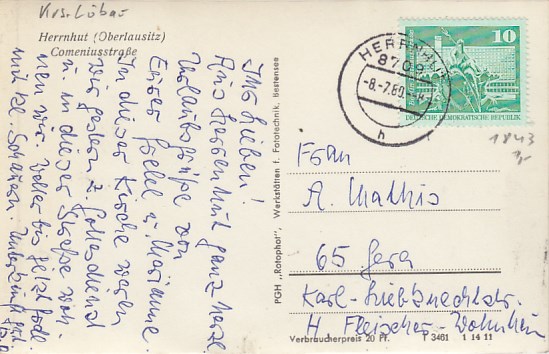 Krs. Löbau
Herrnhut (Oberlausitz)
Comeniusstraße
Ihr Lieben!
Aus Herrnhut ganz herzl.
Urlaubsgrüße von
Eurer u. Marianne
In dieser Kirche waren
wir gestern z. Gottesdienst
u. in dieser Straße woh-
nen wir. Wetter bis jetzt
mit kl. Schauern. Unterkunft
PGH „Rotophot", Werkstätten f. Fototechnik, Bestensee
HERRNHUT
8709
-8.-7.80.
h
10
DEUTSCHE DEMOKRATISCHE REPUBLIK
1843
Frau
A. Mathis
65 Gera
Karl-Liebknechtstr.
H Fleischer-Wohnheim
Verbraucherpreis 20 Pf. P 3461 1 14 11